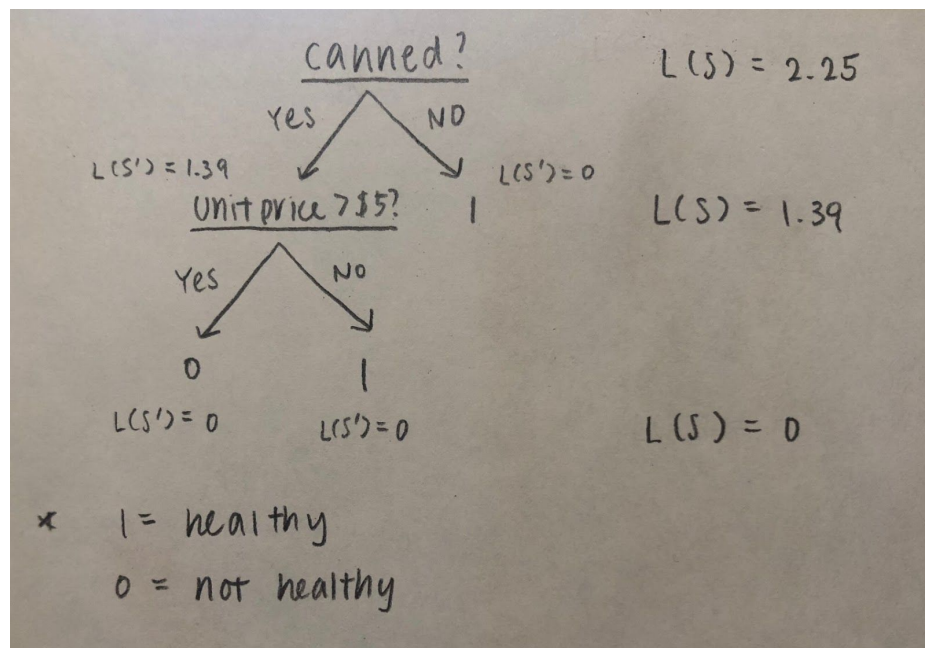 canned?
L(S) = 2.25
Yes
NO
L(S') = 1.39
L(S') = 0
Unit price > $5?
1
L(S) = 1.39
Yes
NO
0
1
L(S') = 0
L(S') = 0
L(S) = 0
* 1 = healthy
0 = not healthy